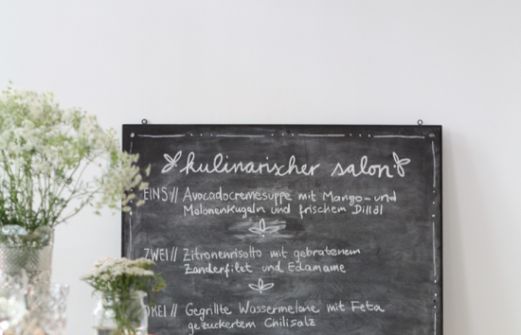 kulinarischer salon
EINS // Avocadocremesuppe mit Mango- und
Melonenkugeln und frischem Dillöl
ZWEI // Zitronenrisotto mit gebratenem
Zanderfilet und Edamame
DREI // Gegrillte Wassermelone mit Feta
gezuckertem Chilisalz